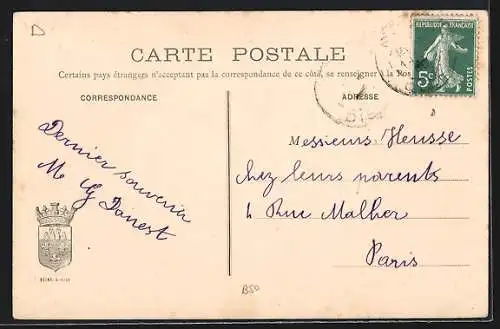 D
CARTE POSTALE
Certains pays étrangers n'acceptant pas la correspondance de ce côté, se renseigner à la Pos
CORRESPONDANCE
ADRESSE
REPUBLIQUE FRANÇAISE
5c
POSTES
Dernier souvenir
Me G Danest
Messieurs Heusse
chez leurs parents
4 Rue Malher
Paris
B50